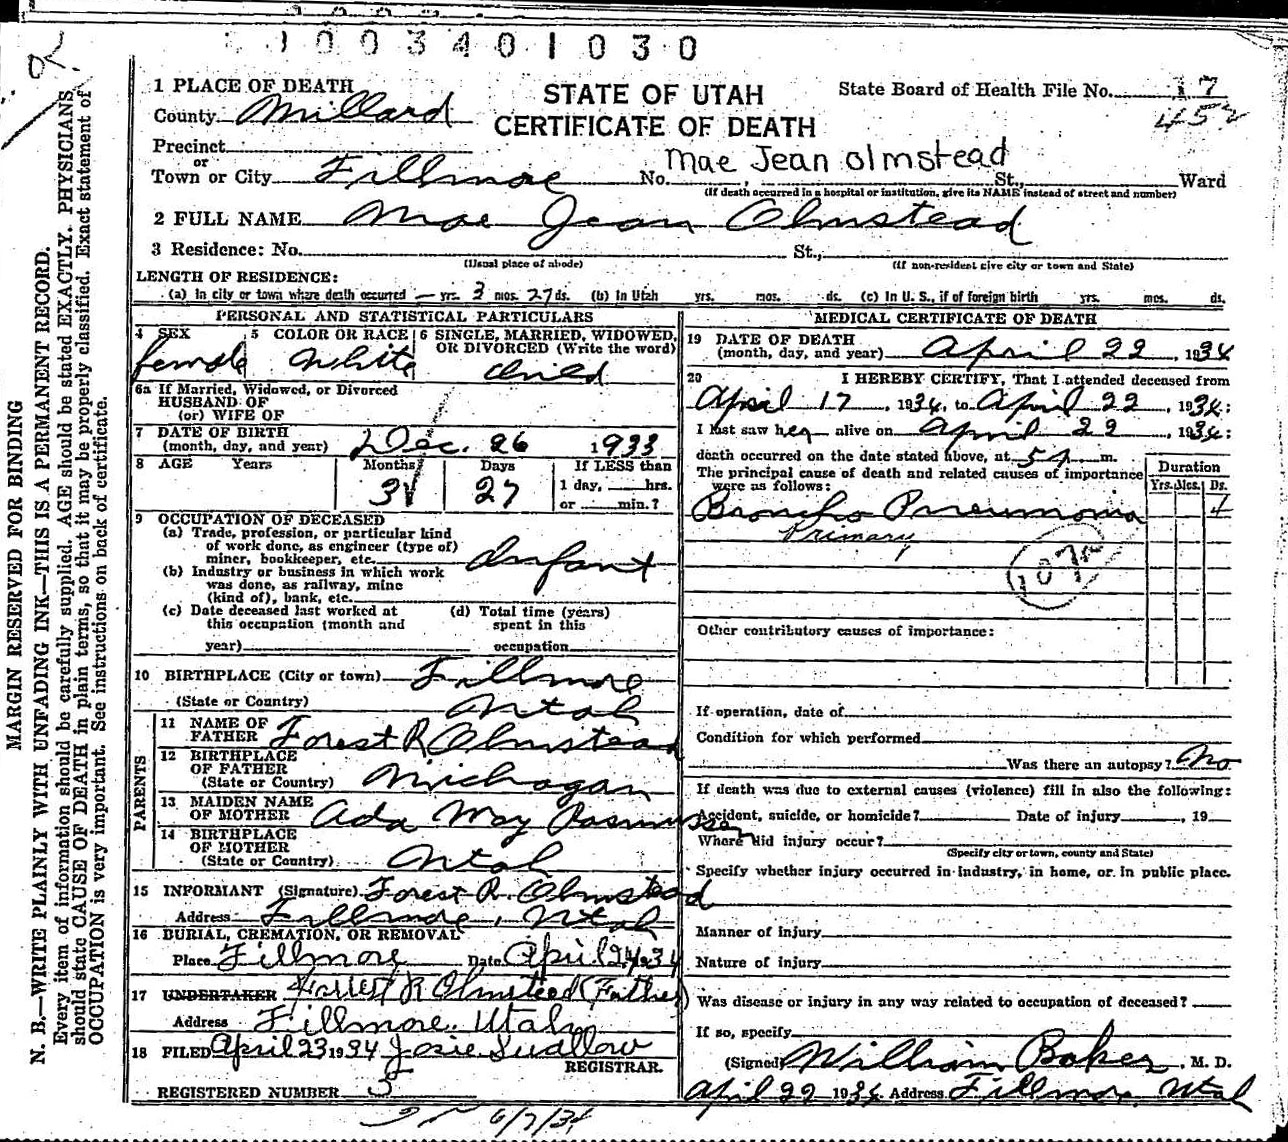 1003401030
MARGIN RESERVED FOR BINDING
N. B.—WRITE PLAINLY WITH UNFADING INK—THIS IS A PERMANENT RECORD.
Every item of information should be carefully supplied. AGE should be stated EXACTLY. PHYSICIANS
should state CAUSE OF DEATH in plain terms, so that it may be properly classified. Exact statement of
OCCUPATION is very important. See instructions on back of certificate.
STATE OF UTAH
CERTIFICATE OF DEATH
State Board of Health File No. 17
452
1 PLACE OF DEATH
County Millard
Precinct
or
Town or City Fillmore No. , St., Ward
Mae Jean Olmstead
(If death occurred in a hospital or institution, give its NAME instead of street and number)
2 FULL NAME Mae Jean Olmstead
3 Residence: No. St.,
(Usual place of abode) (If non-resident give city or town and State)
LENGTH OF RESIDENCE:
(a) In city or town where death occurred — yrs. 3 mos. 27 ds. (b) In Utah yrs. mos. ds. (c) In U. S., if of foreign birth yrs. mos. ds.
PERSONAL AND STATISTICAL PARTICULARS
4 SEX 5 COLOR OR RACE 6 SINGLE, MARRIED, WIDOWED, OR DIVORCED (Write the word)
female White Child
6a If Married, Widowed, or Divorced
HUSBAND OF
(or) WIFE OF
7 DATE OF BIRTH
(month, day, and year) Dec. 26 1933
8 AGE Years Months Days If LESS than
3 27 1 day, hrs.
or min.?
9 OCCUPATION OF DECEASED
(a) Trade, profession, or particular kind
of work done, as engineer (type of)
miner, bookkeeper, etc. Infant
(b) Industry or business in which work
was done, as railway, mine
(kind of), bank, etc.
(c) Date deceased last worked at (d) Total time (years)
this occupation (month and spent in this
year) occupation
10 BIRTHPLACE (City or town) Fillmore
(State or Country) Utah
PARENTS
11 NAME OF
FATHER Forest R Olmstead
12 BIRTHPLACE
OF FATHER
(State or Country) Michagan
13 MAIDEN NAME
OF MOTHER Ada May Rasmussen
14 BIRTHPLACE
OF MOTHER
(State or Country) Utah
15 INFORMANT (Signature) Forest R. Olmstead
Address Fillmore, Utah
16 BURIAL, CREMATION, OR REMOVAL
Place Fillmore Date April 24 1934
17 UNDERTAKER Forrest R Olmstead (Father)
Address Fillmore Utah
18 FILED April 23 1934 Josie Swallow
REGISTRAR.
REGISTERED NUMBER 5
6/7/34
MEDICAL CERTIFICATE OF DEATH
19 DATE OF DEATH
(month, day, and year) April 22, 1934
20 I HEREBY CERTIFY, That I attended deceased from
April 17, 1934, to April 22, 1934:
I last saw her alive on April 22, 1934:
death occurred on the date stated above, at m.
The principal cause of death and related causes of importance
were as follows:
Duration
Yrs. Mos. Ds.
Broncho Pneumonia 4
Primary
107a
Other contributory causes of importance:
If operation, date of
Condition for which performed
Was there an autopsy? No
If death was due to external causes (violence) fill in also the following:
Accident, suicide, or homicide? Date of injury , 19
Where did injury occur?
(Specify city or town, county and State)
Specify whether injury occurred in industry, in home, or in public place.
Manner of injury
Nature of injury
Was disease or injury in any way related to occupation of deceased?
If so, specify
(Signed) William Baker, M. D.
April 22 1934 Address Fillmore, Utah